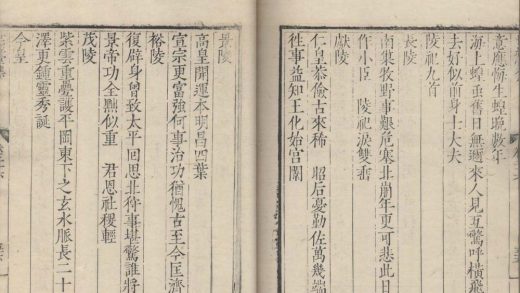 意應憐生蝗晚數年
海上蝗乖舊日無邇來人見互驚呼橫飛
去好似前身士大夫
陵祀九首
長陵
南巢牧野事艱危塞北崩年更可悲此日
作小臣 陵祀淚雙垂
獻陵
仁皇恭儉古來稀 昭后憂勤佐萬幾端
徃事益知王化始宮闈
景陵
高皇開運本明昌四葉
宣宗更富強何事治功猶愧古至今匡濟
裕陵
復辟身曾致太平回思北狩事堪驚誰將
景帝功全黜似重 君恩社稷輕
茂陵
紫雲重疊護平岡東下之玄水脈長二十
澤更鍾靈秀誕
今皇